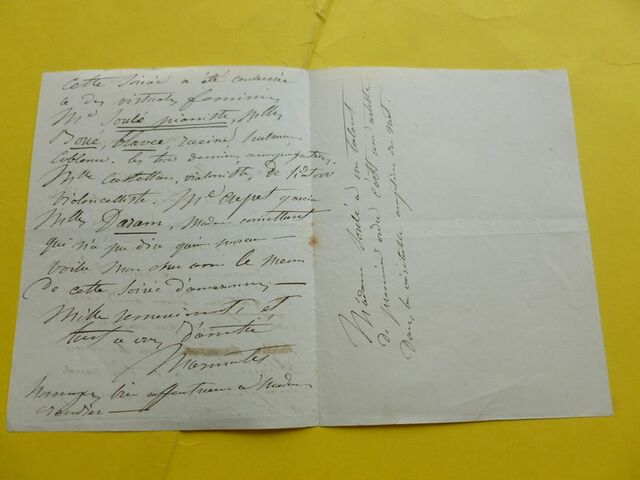 Cette Soirée a été consacrée
a des virtuoses féminins
Me Soulé pianiste, Mlles
Boué, Blavee, racine,
Leblanc. les trois dernières
Mlle Castellan, violoniste, De
violoncelliste. Me Crepet garcia
Mlles Daram, Mdme
qui n'a pu dire qu'un morceau
voilà mon cher ami le menu
De cette Soirée d'amazones —
Mille remerciments, et
tout a vous d'amitié,
hommages bien affectueux à Madame
Madame Soulé a un talent
De premier ordre c'est une artiste
Dans la véritable acception du mot.